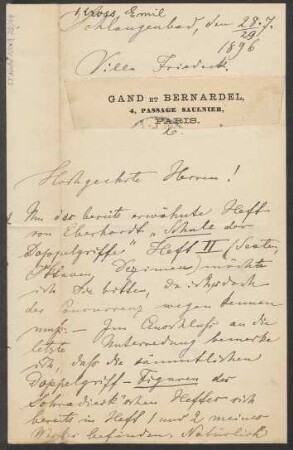 Kross, Emil
Schlangenbad, den 28.7.
29
1896
Villa Friedeck.
GAND ET BERNARDEL,
4, PASSAGE SAULNIER,
PARIS.
Hochgeehrte Herren!
Um das bereits erwähnte Heft
von Eberhardt „Schule der
Doppelgriffe“ Heft II (Sexten,
Octaven, Dezimen) möchte
ich Sie bitten, da ich doch
der Concurrenz wegen kennen
muß. – Im Anschluss an die
letzte Unterredung bemerke
ich, daß die sämmtlichen
Doppelgriff-Figuren der
Schradieck'schen Hefte sich
bereits in Heft 1 und 2 meiner
Werke befinden. Natürlich